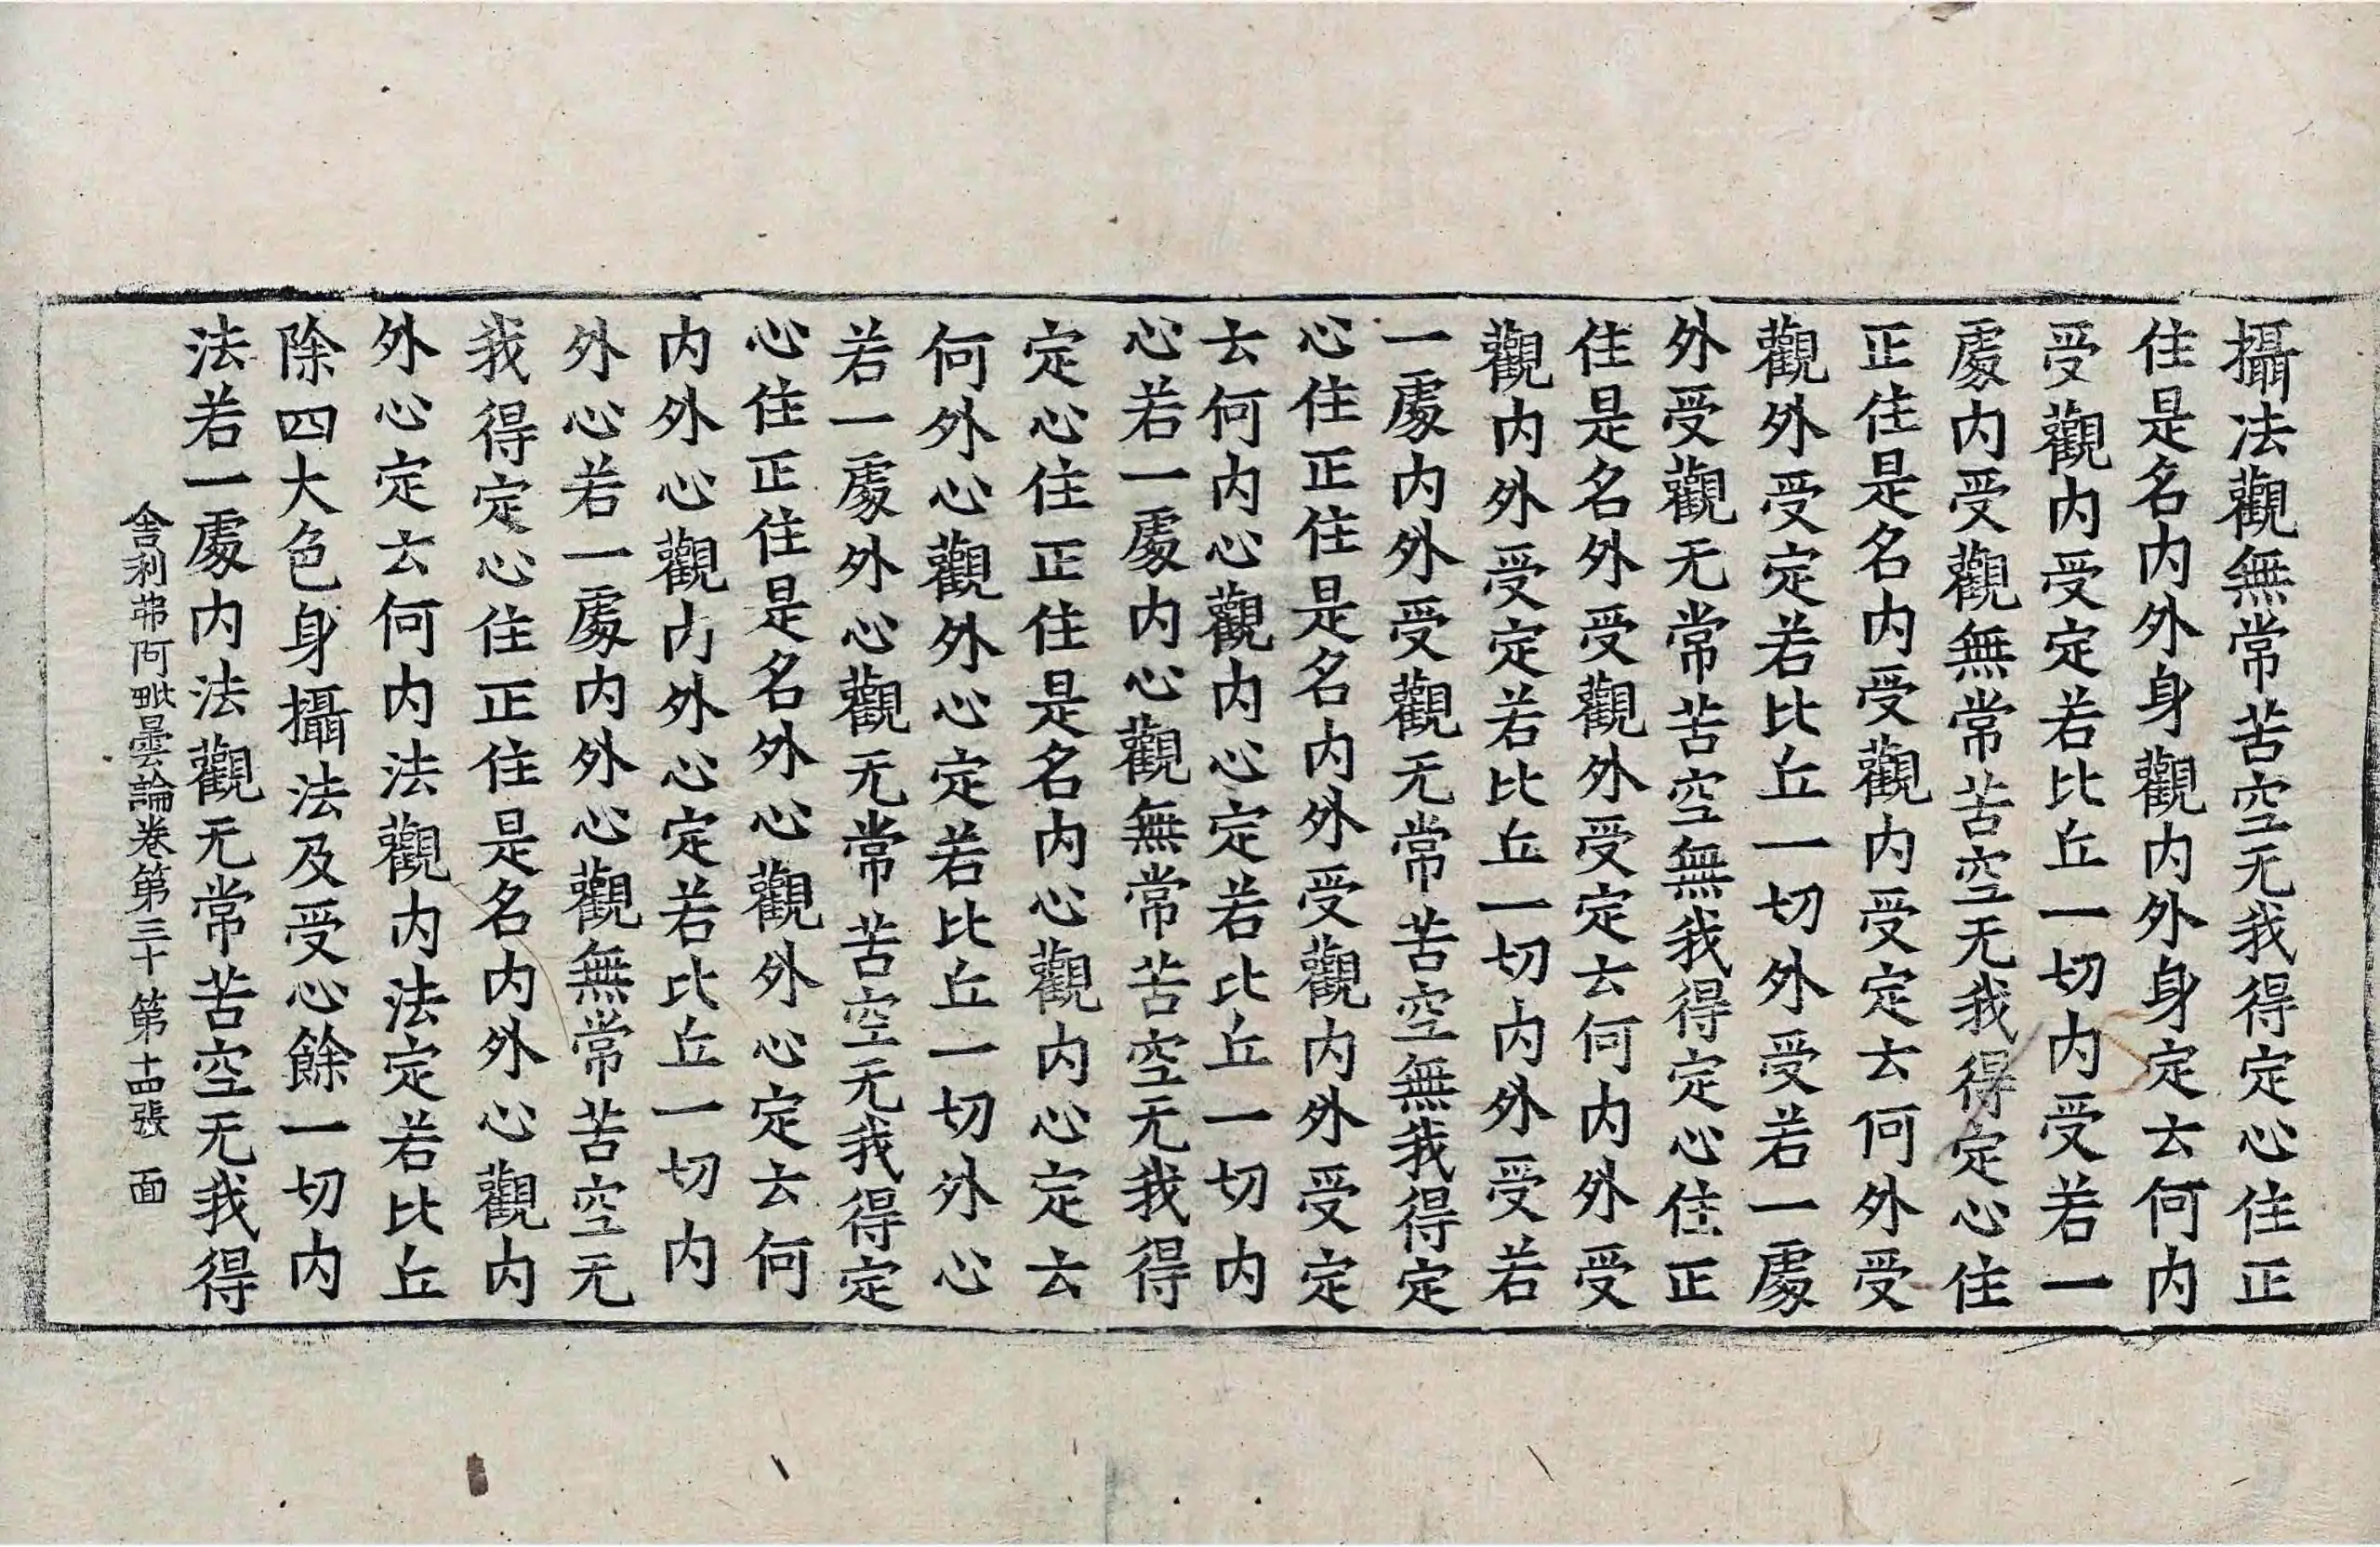 攝法觀無常苦空无我得定心住正
住是名内外身觀内外身定云何内
受觀内受定若比丘一切内受若一
處内受觀無常苦空无我得定心住
正住是名内受觀内受定云何外受
觀外受定若比丘一切外受若一處
外受觀无常苦空無我得定心住正
住是名外受觀外受定云何内外受
觀内外受定若比丘一切内外受若
一處内外受觀无常苦空無我得定
心住正住是名内外受觀内外受定
云何内心觀内心定若比丘一切内
心若一處内心觀無常苦空无我得
定心住正住是名内心觀内心定云
何外心觀外心定若比丘一切外心
若一處外心觀无常苦空无我得定
心住正住是名外心觀外心定云何
内外心觀内外心定若比丘一切内
外心若一處内外心觀無常苦空无
我得定心住正住是名内外心觀内
外心定云何内法觀内法定若比丘
除四大色身攝法及受心餘一切内
法若一處内法觀无常苦空无我得
舎利弗阿毗曇論卷第三十 第十四張 面